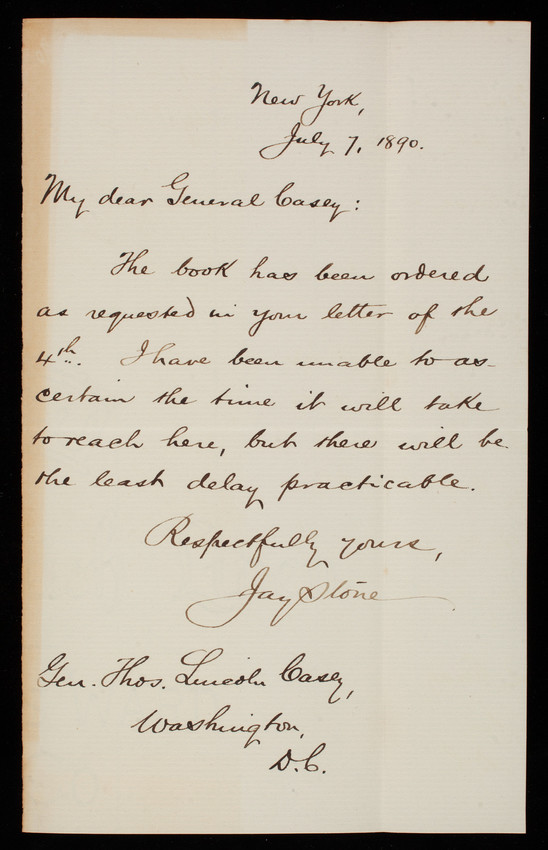 New York,
July 7, 1890.
My dear General Casey:
The book has been ordered
as requested in your letter of the
4th. I have been unable to as-
certain the time it will take
to reach here, but there will be
the least delay practicable.
Respectfully yours,
Jay Stone
Gen. Thos. Lincoln Casey,
Washington,
D.C.